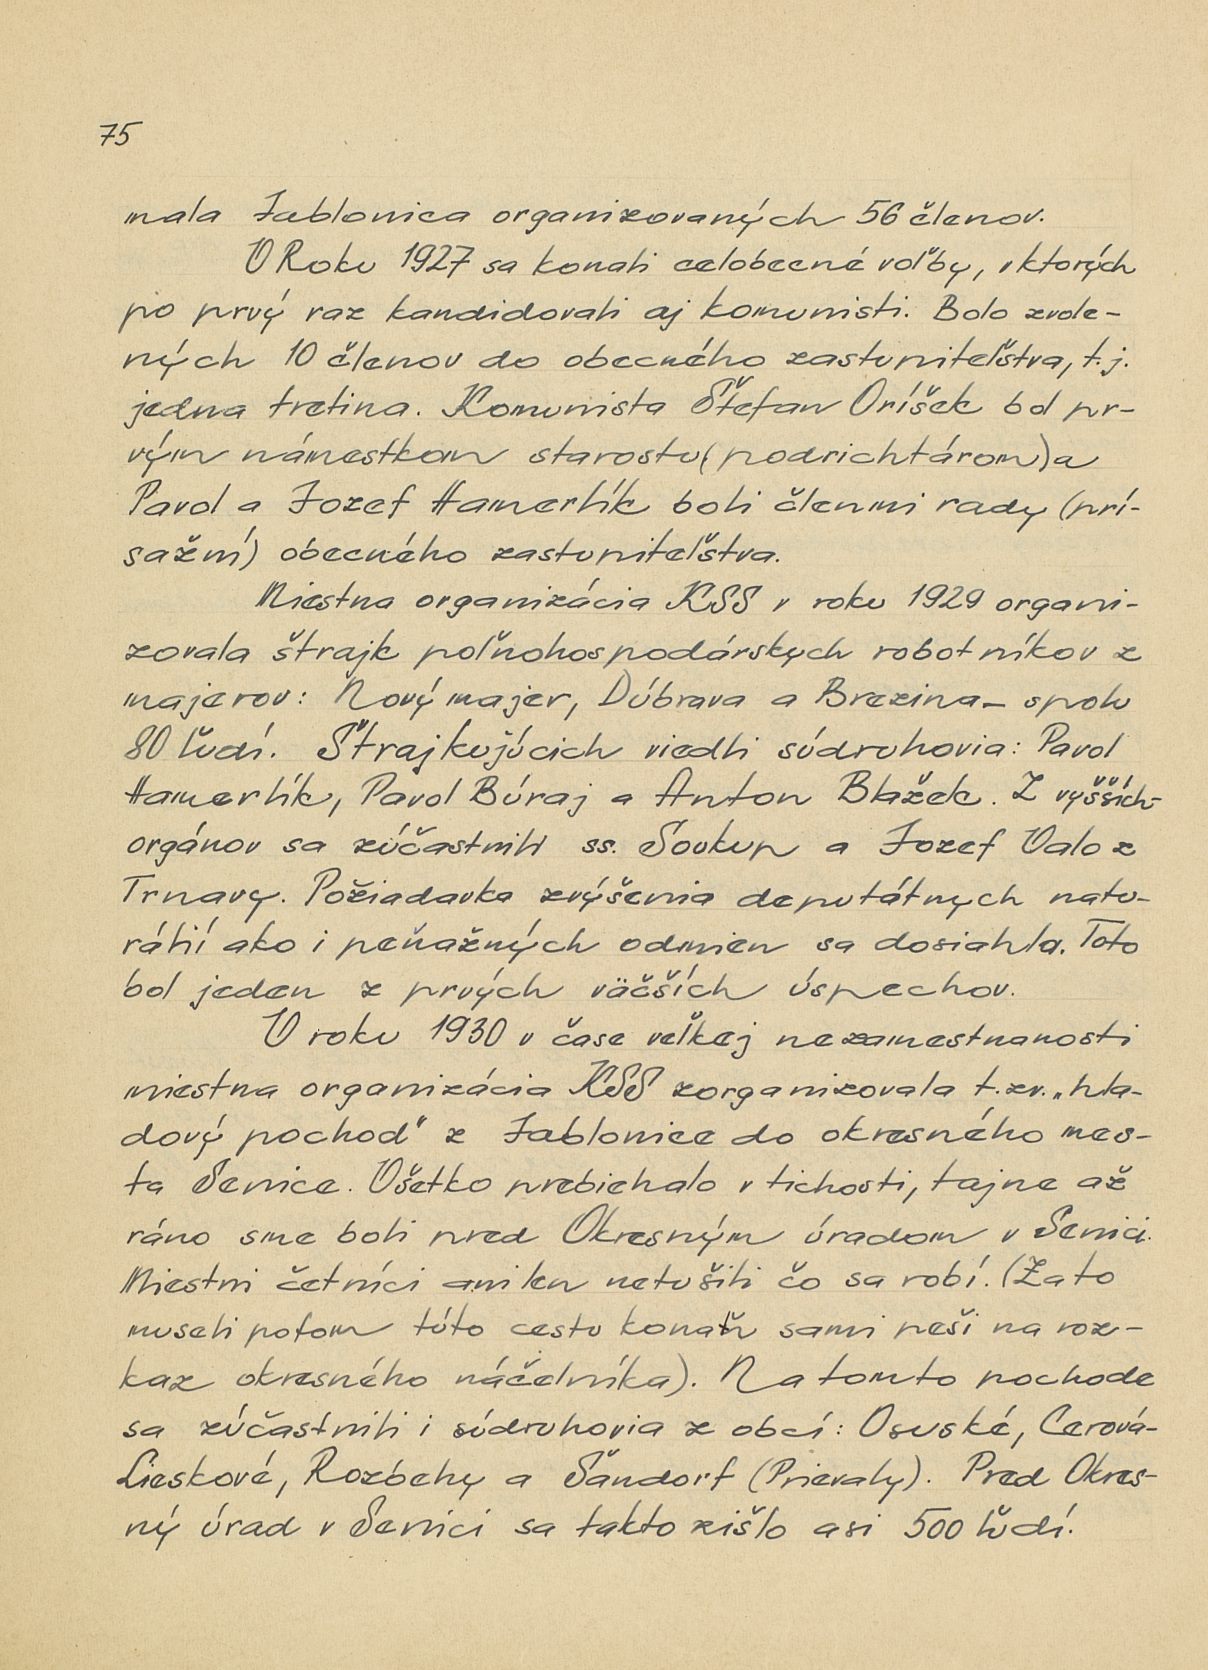 75
mala Jablonica organizovaných 56 členov.
V Roku 1927 sa konali celobecné voľby, v ktorých
po prvý raz kandidovali aj komunisti. Bolo zvole-
ných 10 členov do obecného zastupiteľstva, t.j.
jedna tretina. Komunista Štefan Oríšek bol pr-
vým námestkom starostu (podrichtárom) a
Pavol a Jozef Hamerlík boli členmi rady (prí-
sažní) obecného zastupiteľstva.
Miestna organizácia KSS v roku 1929 organi-
zovala štrajk poľnohospodárskych robotníkov z
majerov: Nový majer, Dúbrava a Brezina – spolu
80 ľudí. Štrajkujúcich viedli súdruhovia: Pavol
Hamerlík, Pavol Búraj a Anton Blažek. Z vyšších
orgánov sa zúčastnili ss. Soukup a Jozef Valo z
Trnavy. Požiadavka zvýšenia deputátnych natu-
rálií ako i peňažných odmien sa dosiahla. Toto
bol jeden z prvých väčších úspechov.
V roku 1930 v čase veľkej nezamestnanosti
miestna organizácia KSS zorganizovala t.zv. „hla-
dový pochod" z Jablonice do okresného mes-
ta Senice. Všetko prebiehalo v tichosti, tajne až
ráno sme boli pred Okresným úradom v Senici.
Miestni četníci ani len netušili čo sa robí. (Za to
museli potom túto cestu konať sami peši na roz-
kaz okresného náčelníka). Na tomto pochode
sa zúčastnili i súdruhovia z obcí: Osuské, Cerová-
Lieskové, Rozbehy a Šandorf (Prievaly). Pred Okres-
ný úrad v Senici sa takto zišlo asi 500 ľudí.